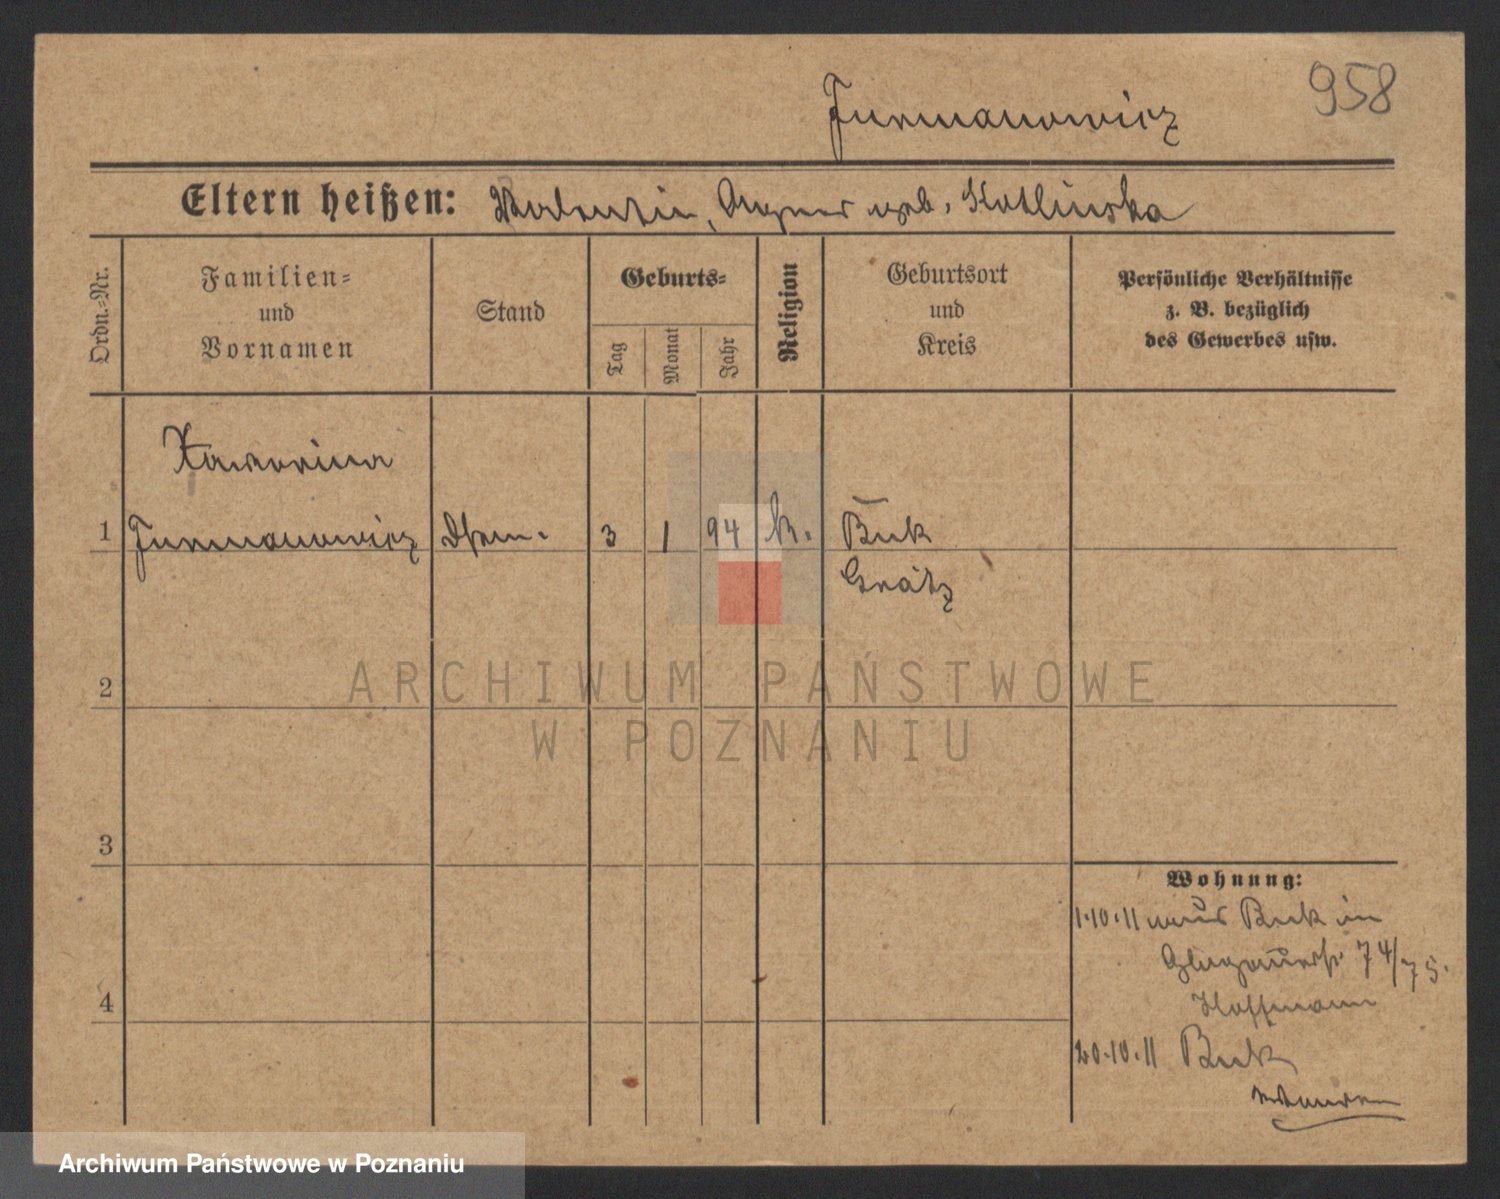 958
Furmanowicz
Eltern heißen: Valentin, Agnes geb. Kotlinska
Ordn.-Nr.
Familien-
und
Vornamen
Stand
Geburts-
Tag
Monat
Jahr
Religion
Geburtsort
und
Kreis
Persönliche Verhältnisse
z. B. bezüglich
des Gewerbes usw.
1
Furmanowicz
3
1
94
k.
Buk
Grätz
2
ARCHIWUM PAŃSTWOWE
W POZNANIU
3
Wohnung:
1.10.11 aus Buk in
Glogauerstr 74/75.
Hoffmann
4
20.10.11 Buk
Archiwum Państwowe w Poznaniu